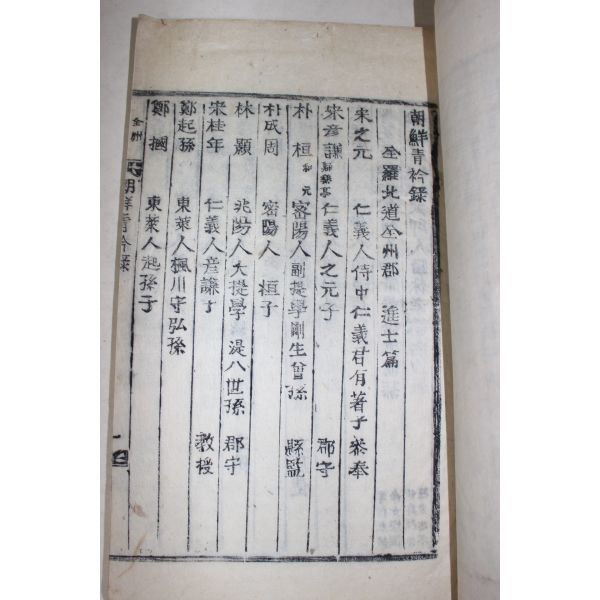 朝鮮青衿錄
全羅北道全州郡 進士篇
宋之元 仁義人侍中仁義君有著子 參奉
宋彦謙 仁義人之元子 郡守
朴桓 密陽人副提學剛生曾孫 縣監
朴成周 密陽人桓子
林顥 兆陽人大提學湜八世孫 郡守
宋桂年 仁義人彦謙子 教授
鄭起孫 東萊人楓川守弘孫
鄭摑 東萊人起孫子
全州
朝鮮青衿錄
一